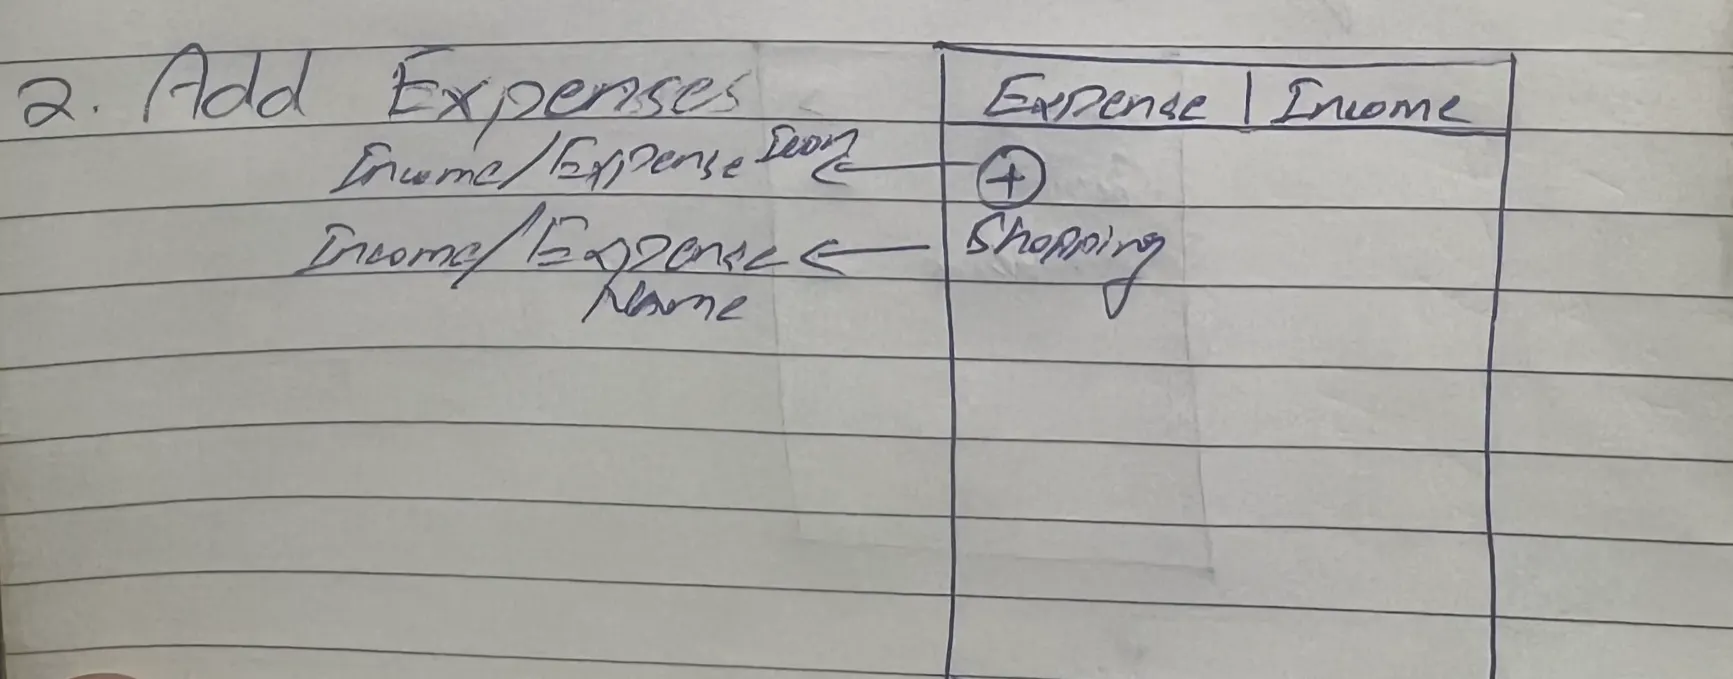 2. Add Expenses
Expense | Income
Income/Expense Icon
+
Income/Expense
Name
Shopping